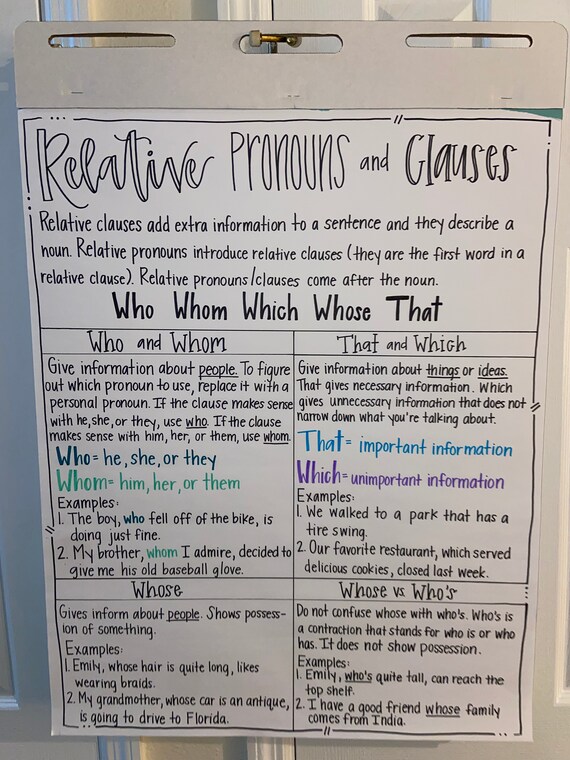 Relative Pronouns and Clauses
Relative clauses add extra information to a sentence and they describe a
noun. Relative pronouns introduce relative clauses (they are the first word in a
relative clause). Relative pronouns/clauses come after the noun.
Who Whom Which Whose That
Who and Whom
Give information about people. To figure
out which pronoun to use, replace it with a
personal pronoun. If the clause makes sense
with he, she, or they, use who. If the clause
makes sense with him, her, or them, use whom.
Who= he, she, or they
Whom= him, her, or them
Examples:
1. The boy, who fell off of the bike, is
doing just fine.
2. My brother, whom I admire, decided to
give me his old baseball glove.
That and Which
Give information about things or ideas.
That gives necessary information. Which
gives unnecessary information that does not
narrow down what you're talking about.
That= important information
Which= unimportant information
Examples:
1. We walked to a park that has a
tire swing.
2. Our favorite restaurant, which served
delicious cookies, closed last week.
Whose
Gives inform about people. Shows possess-
ion of something.
Examples:
1. Emily, whose hair is quite long, likes
wearing braids.
2. My grandmother, whose car is an antique,
is going to drive to Florida.
Whose vs Who's
Do not confuse whose with who's. Who's is
a contraction that stands for who is or who
has. It does not show possession.
Examples:
1. Emily, who's quite tall, can reach the
top shelf.
2. I have a good friend whose family
comes from India.